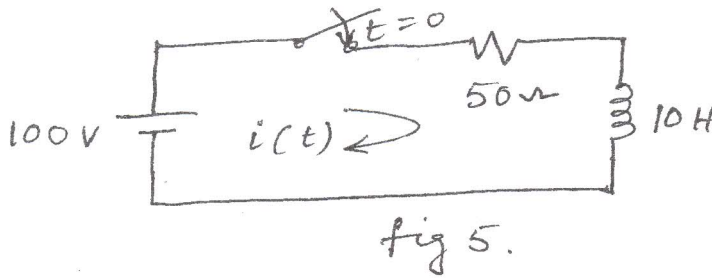 t=0
50Ω
100V
i(t)
10H
fig 5.